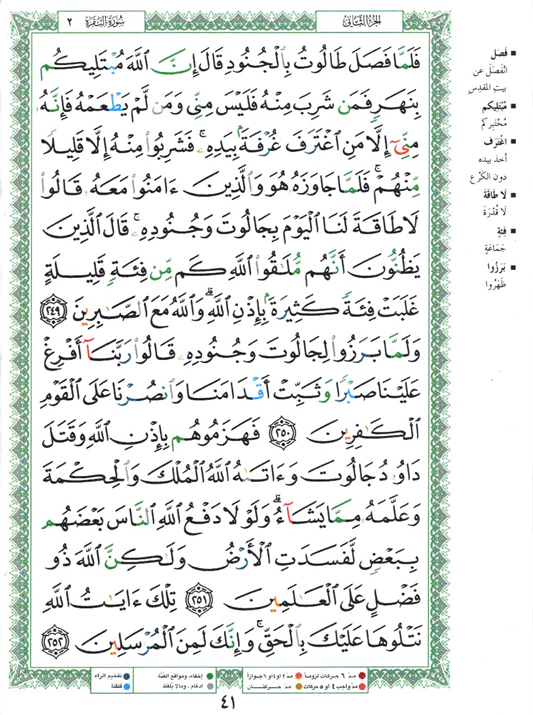 الجزء الثاني
سورة البقرة ٢
فَلَمَّا فَصَلَ طَالُوتُ بِٱلْجُنُودِ قَالَ إِنَّ ٱللَّهَ مُبْتَلِيكُم
بِنَهَرٍ فَمَن شَرِبَ مِنْهُ فَلَيْسَ مِنِّى وَمَن لَّمْ يَطْعَمْهُ فَإِنَّهُۥ
مِنِّىٓ إِلَّا مَنِ ٱغْتَرَفَ غُرْفَةًۢ بِيَدِهِۦ ۚ فَشَرِبُوا۟ مِنْهُ إِلَّا قَلِيلًا
مِّنْهُمْ ۚ فَلَمَّا جَاوَزَهُۥ هُوَ وَٱلَّذِينَ ءَامَنُوا۟ مَعَهُۥ قَالُوا۟
لَا طَاقَةَ لَنَا ٱلْيَوْمَ بِجَالُوتَ وَجُنُودِهِۦ ۚ قَالَ ٱلَّذِينَ
يَظُنُّونَ أَنَّهُم مُّلَـٰقُوا۟ ٱللَّهِ كَم مِّن فِئَةٍ قَلِيلَةٍ
غَلَبَتْ فِئَةً كَثِيرَةًۢ بِإِذْنِ ٱللَّهِ ۗ وَٱللَّهُ مَعَ ٱلصَّـٰبِرِينَ ٢٤٩
وَلَمَّا بَرَزُوا۟ لِجَالُوتَ وَجُنُودِهِۦ قَالُوا۟ رَبَّنَآ أَفْرِغْ
عَلَيْنَا صَبْرًا وَثَبِّتْ أَقْدَامَنَا وَٱنصُرْنَا عَلَى ٱلْقَوْمِ
ٱلْكَـٰفِرِينَ ٢٥٠ فَهَزَمُوهُم بِإِذْنِ ٱللَّهِ وَقَتَلَ
دَاوُۥدُ جَالُوتَ وَءَاتَىٰهُ ٱللَّهُ ٱلْمُلْكَ وَٱلْحِكْمَةَ
وَعَلَّمَهُۥ مِمَّا يَشَآءُ ۗ وَلَوْلَا دَفْعُ ٱللَّهِ ٱلنَّاسَ بَعْضَهُم
بِبَعْضٍ لَّفَسَدَتِ ٱلْأَرْضُ وَلَـٰكِنَّ ٱللَّهَ ذُو
فَضْلٍ عَلَى ٱلْعَـٰلَمِينَ ٢٥١ تِلْكَ ءَايَـٰتُ ٱللَّهِ
نَتْلُوهَا عَلَيْكَ بِٱلْحَقِّ ۚ وَإِنَّكَ لَمِنَ ٱلْمُرْسَلِينَ ٢٥٢
■ فَصَلَ
انْفَصَلَ عن
بيتِ المَقْدِس
■ مُبْتَلِيكُم
مُخْتَبِرُكُم
■ اغْتَرَفَ
أخذ بيده
دون الكَرْعِ
■ لا طَاقَةَ
لا قُدْرَةَ
■ فِئَةٍ
جَمَاعَةٍ
■ بَرَزُوا
ظَهَرُوا
مدّ ٦ حركات لزوماً
مدّ ٢ أو ٤ أو ٦ جوازاً
مدّ واجب ٤ أو ٥ حركات
مدّ حركتان
إخفاء، ومواقع الغُنَّة
إدغام، وما لا يُلفَظ
تفخيم الراء
قلقلة
٤١